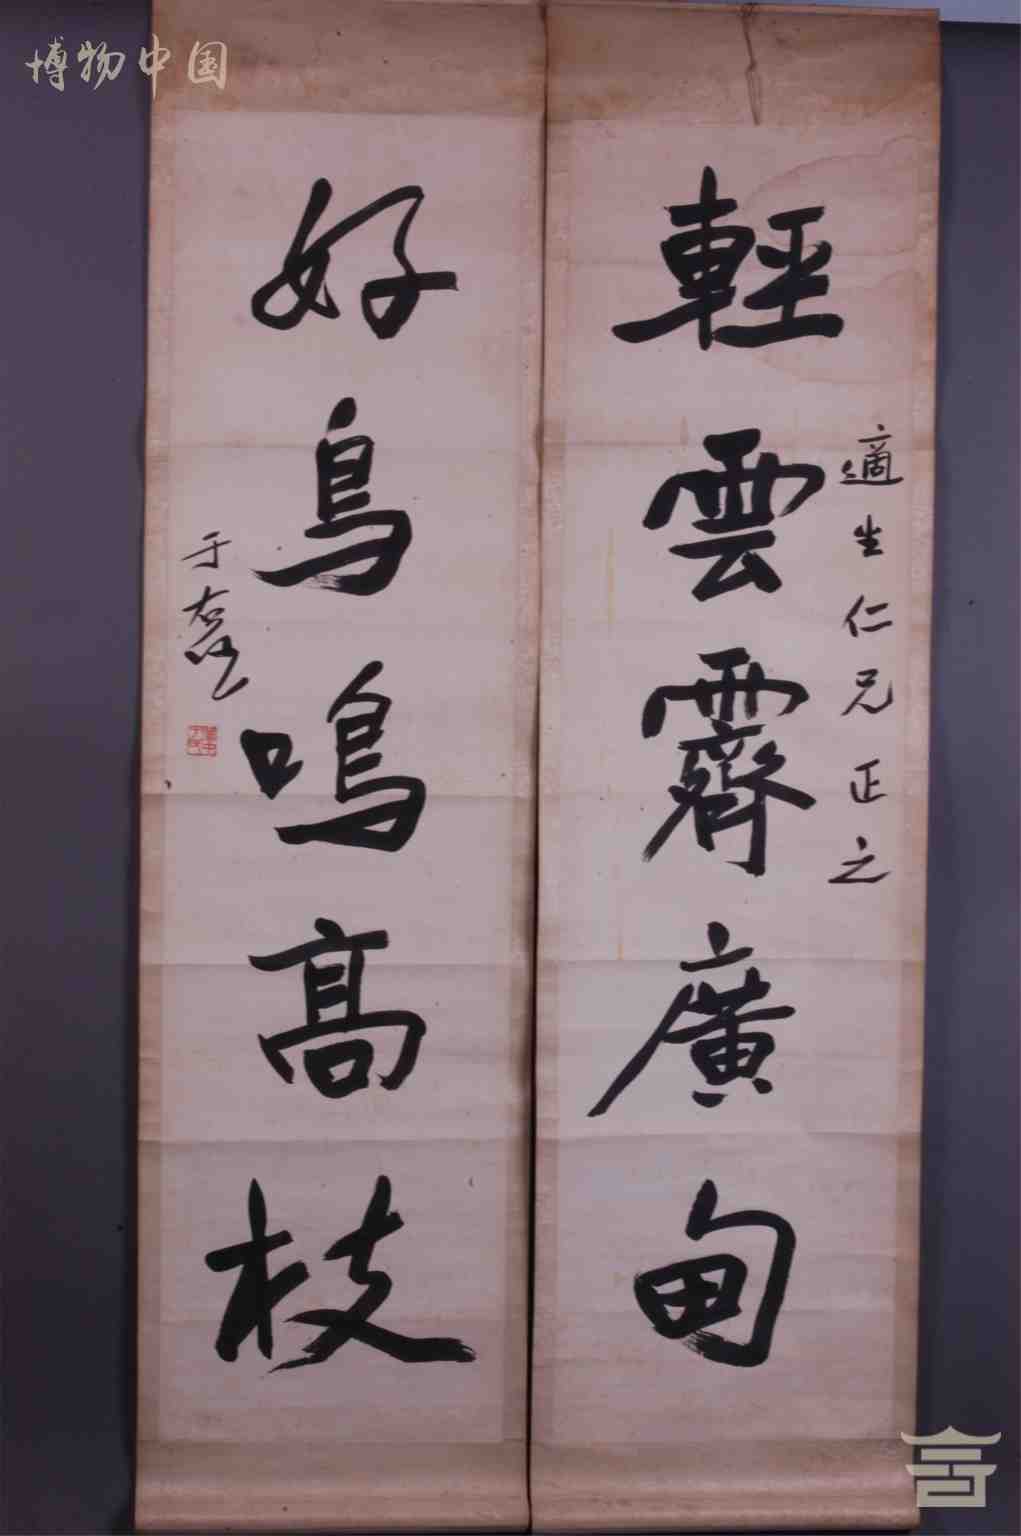 博物中国
輕雲霽廣甸
適生仁兄正之
好鳥鳴高枝
于右任